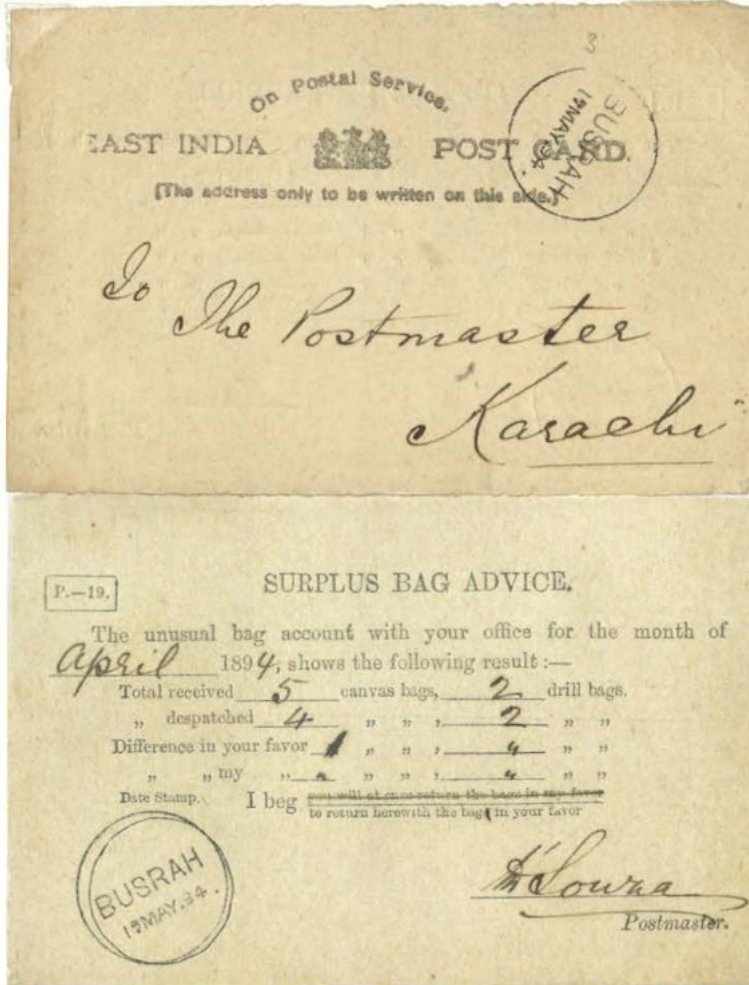 3
On Postal Service.
EAST INDIA POST CARD.
[The address only to be written on this side.]
BUSRAH
MAY.94.
To
The Postmaster
Karachi
P.—19.
SURPLUS BAG ADVICE.
The unusual bag account with your office for the month of
April 1894, shows the following result :—
Total received 5 canvas bags, 2 drill bags.
„ despatched 4 „ „ , 2 „ „
Difference in your favor 1 „ „ , „ „ „
„ „ my „ „ „ „ , „ „ „
Date Stamp. I beg you will at once return the bags in my favor
to return herewith the bag in your favor
BUSRAH
MAY.94.
D'Souza
Postmaster.